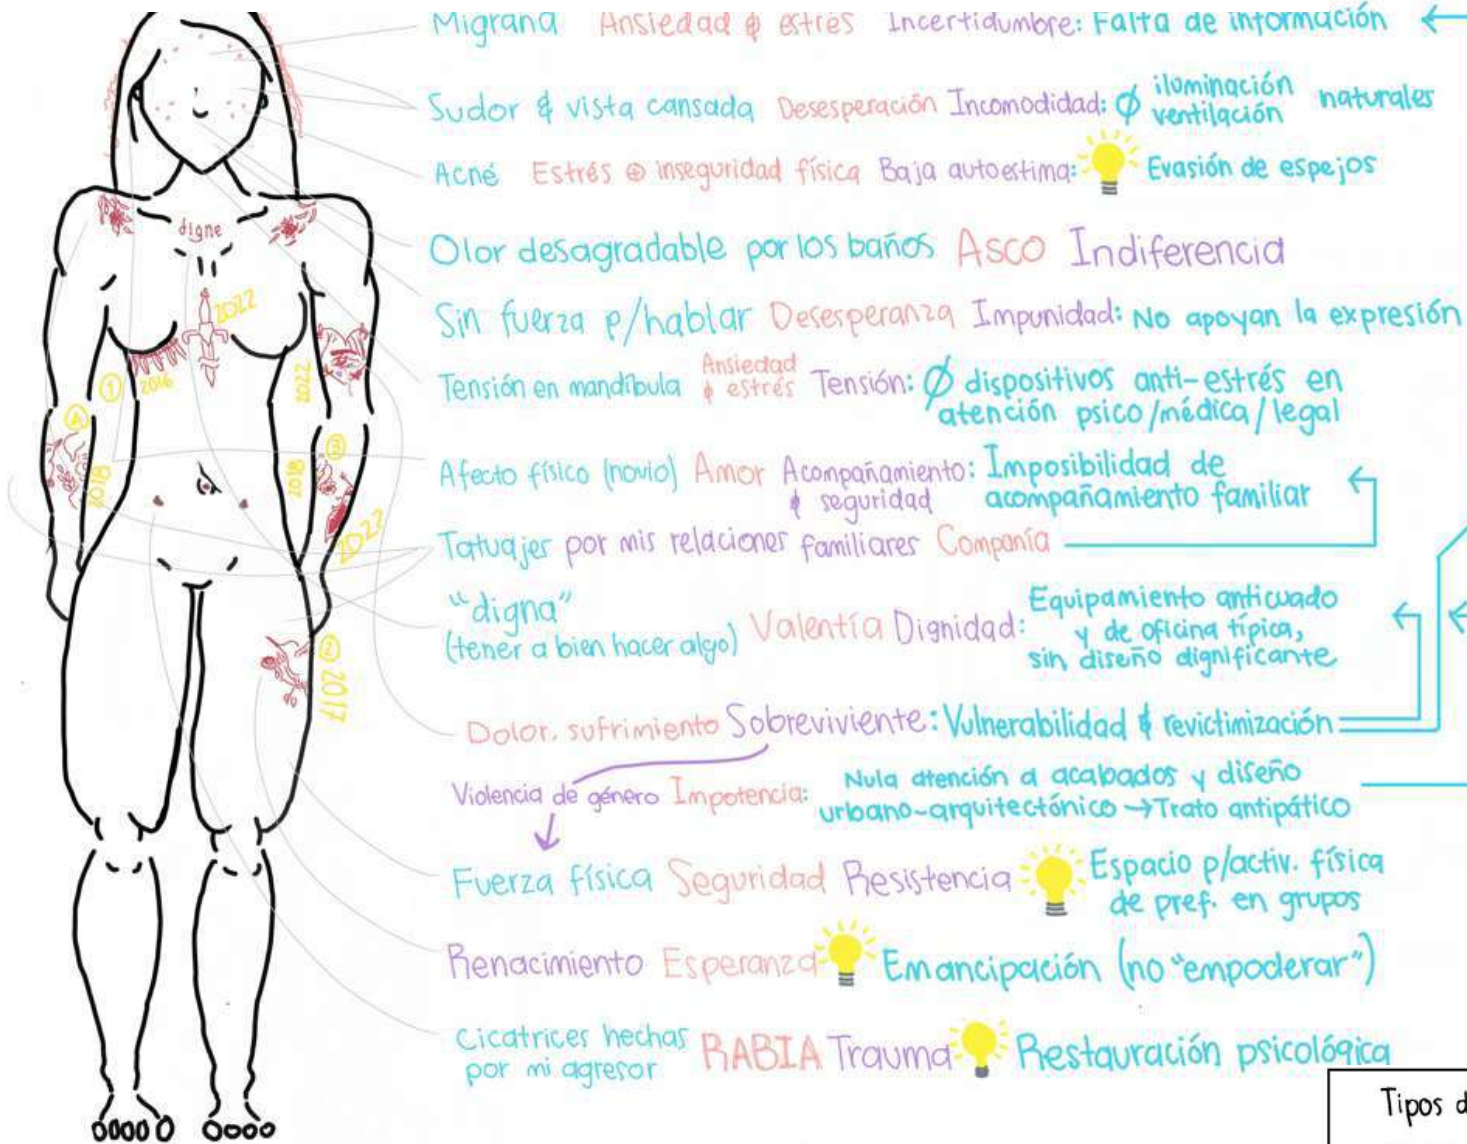 Migraña Ansiedad & estrés Incertidumbre: Falta de información
Sudor & vista cansada Desesperación Incomodidad: Ø iluminación
ventilación naturales
Acné Estrés ⊕ inseguridad física Baja autoestima: Evasión de espejos
digne
Olor desagradable por los baños Asco Indiferencia
2022
Sin fuerza p/hablar Desesperanza Impunidad: No apoyan la expresión
Tensión en mandíbula Ansiedad
& estrés Tensión: Ø dispositivos anti-estrés en
atención psico/médica/legal
① 2016
2022
④ 2018
③ 2018
2022
Afecto físico (novio) Amor Acompañamiento
& seguridad: Imposibilidad de
acompañamiento familiar
Tatuajes por mis relaciones familiares Compañía
"digna"
(tener a bien hacer algo) Valentía Dignidad: Equipamiento anticuado
y de oficina típica,
sin diseño dignificante
② 2017
Dolor, sufrimiento Sobreviviente: Vulnerabilidad & revictimización
Violencia de género Impotencia: Nula atención a acabados y diseño
urbano-arquitectónico → Trato antipático
Fuerza física Seguridad Resistencia Espacio p/activ. física
de pref. en grupos
Renacimiento Esperanza Emancipación (no "empoderar")
Cicatrices hechas
por mi agresor RABIA Trauma Restauración psicológica
Tipos d